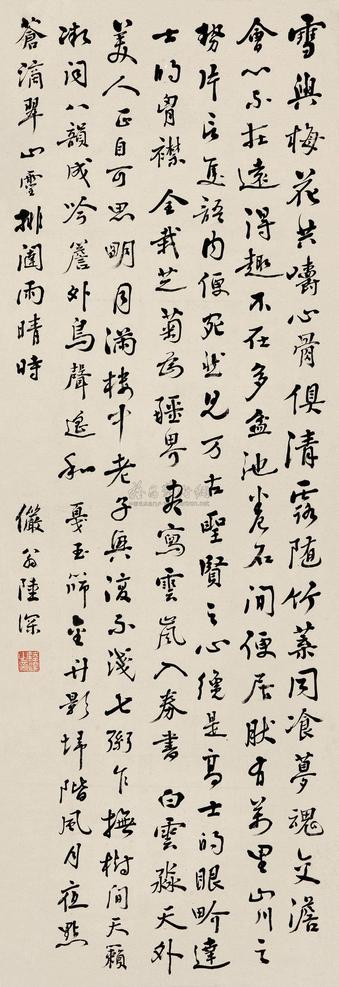 雪與梅花共嚼心骨俱清露随竹葉同飡夢魂交澹
會心不在遠得趣不在多盆池卷石間便居然有萬里山川之
勢片言隻語内便宛然見万古聖賢之心纔是高士的眼界達
士的胷襟 全栽芝菊为疆界 寫雲嵐入券書 白雲淼天外
美人正自可思明月满樓中老子興復不淺七弦乍撫樹間天籟
漸闻八韻成吟簷外鳥聲遥和 戛玉篩金竹影埽階風月夜點
蒼滴翠山雲排闥雨晴時
儼翁陸深